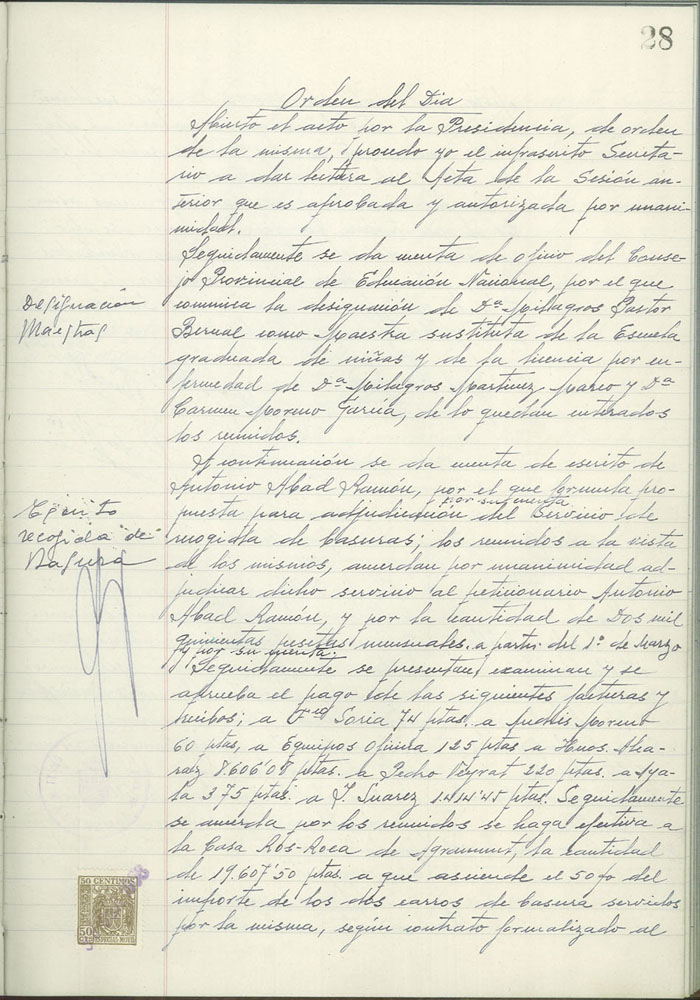 28
Orden del Dia
Abierto el acto por la Presidencia, de orden
de la misma, procedo yo el infrascrito Secreta-
rio a dar lectura al Acta de la Sesión an-
terior que es aprobada y autorizada por unani-
midad.
Seguidamente se da cuenta de oficio del Conse-
jo Provincial de Educación Nacional, por el que
comunica la designación de Dª Milagros Pastor
Bernal como Maestra sustituta de la Escuela
graduada de niñas y de la licencia por en-
fermedad de Dª Milagros Martinez Marco y Dª
Carmen Moreno Garcia, de lo quedan enterados
los reunidos.
Designación
Maestras
A continuación se da cuenta de escrito de
Antonio Abad Ramón, por el que formula pro-
por su cuenta
puesta para adjudicación del Servicio de
recogida de Basuras; los reunidos a la vista
de los mismos, acuerdan por unanimidad ad-
judicar dicho servicio al peticionario Antonio
Abad Ramón, y por la cantidad de Dos mil
quinientas pesetas mensuales. a partir del 1º de Marzo
y por su cuenta.
Escrito
recogida de
Basura
Seguidamente se presentan, examinan y se
aprueba el pago de las siguientes facturas y
recibos; a Fco Soria 74 ptas. a Andrés Moreno
60 ptas, a Equipos Oficina 125 ptas a Hnos. Alca-
raz 8.606'08 ptas. a Pedro Peyrat 220 ptas. a Aya-
la 375 ptas. a J. Suarez 1414'45 ptas. Seguidamente
se acuerda por los reunidos se haga efectiva a
la Casa Ros-Roca de Agramunt, la cantidad
de 19.607'50 ptas. a que asciende el 50% del
importe de los dos carros de basura servidos
por la misma, según contrato formalizado al
50 CENTIMOS
50